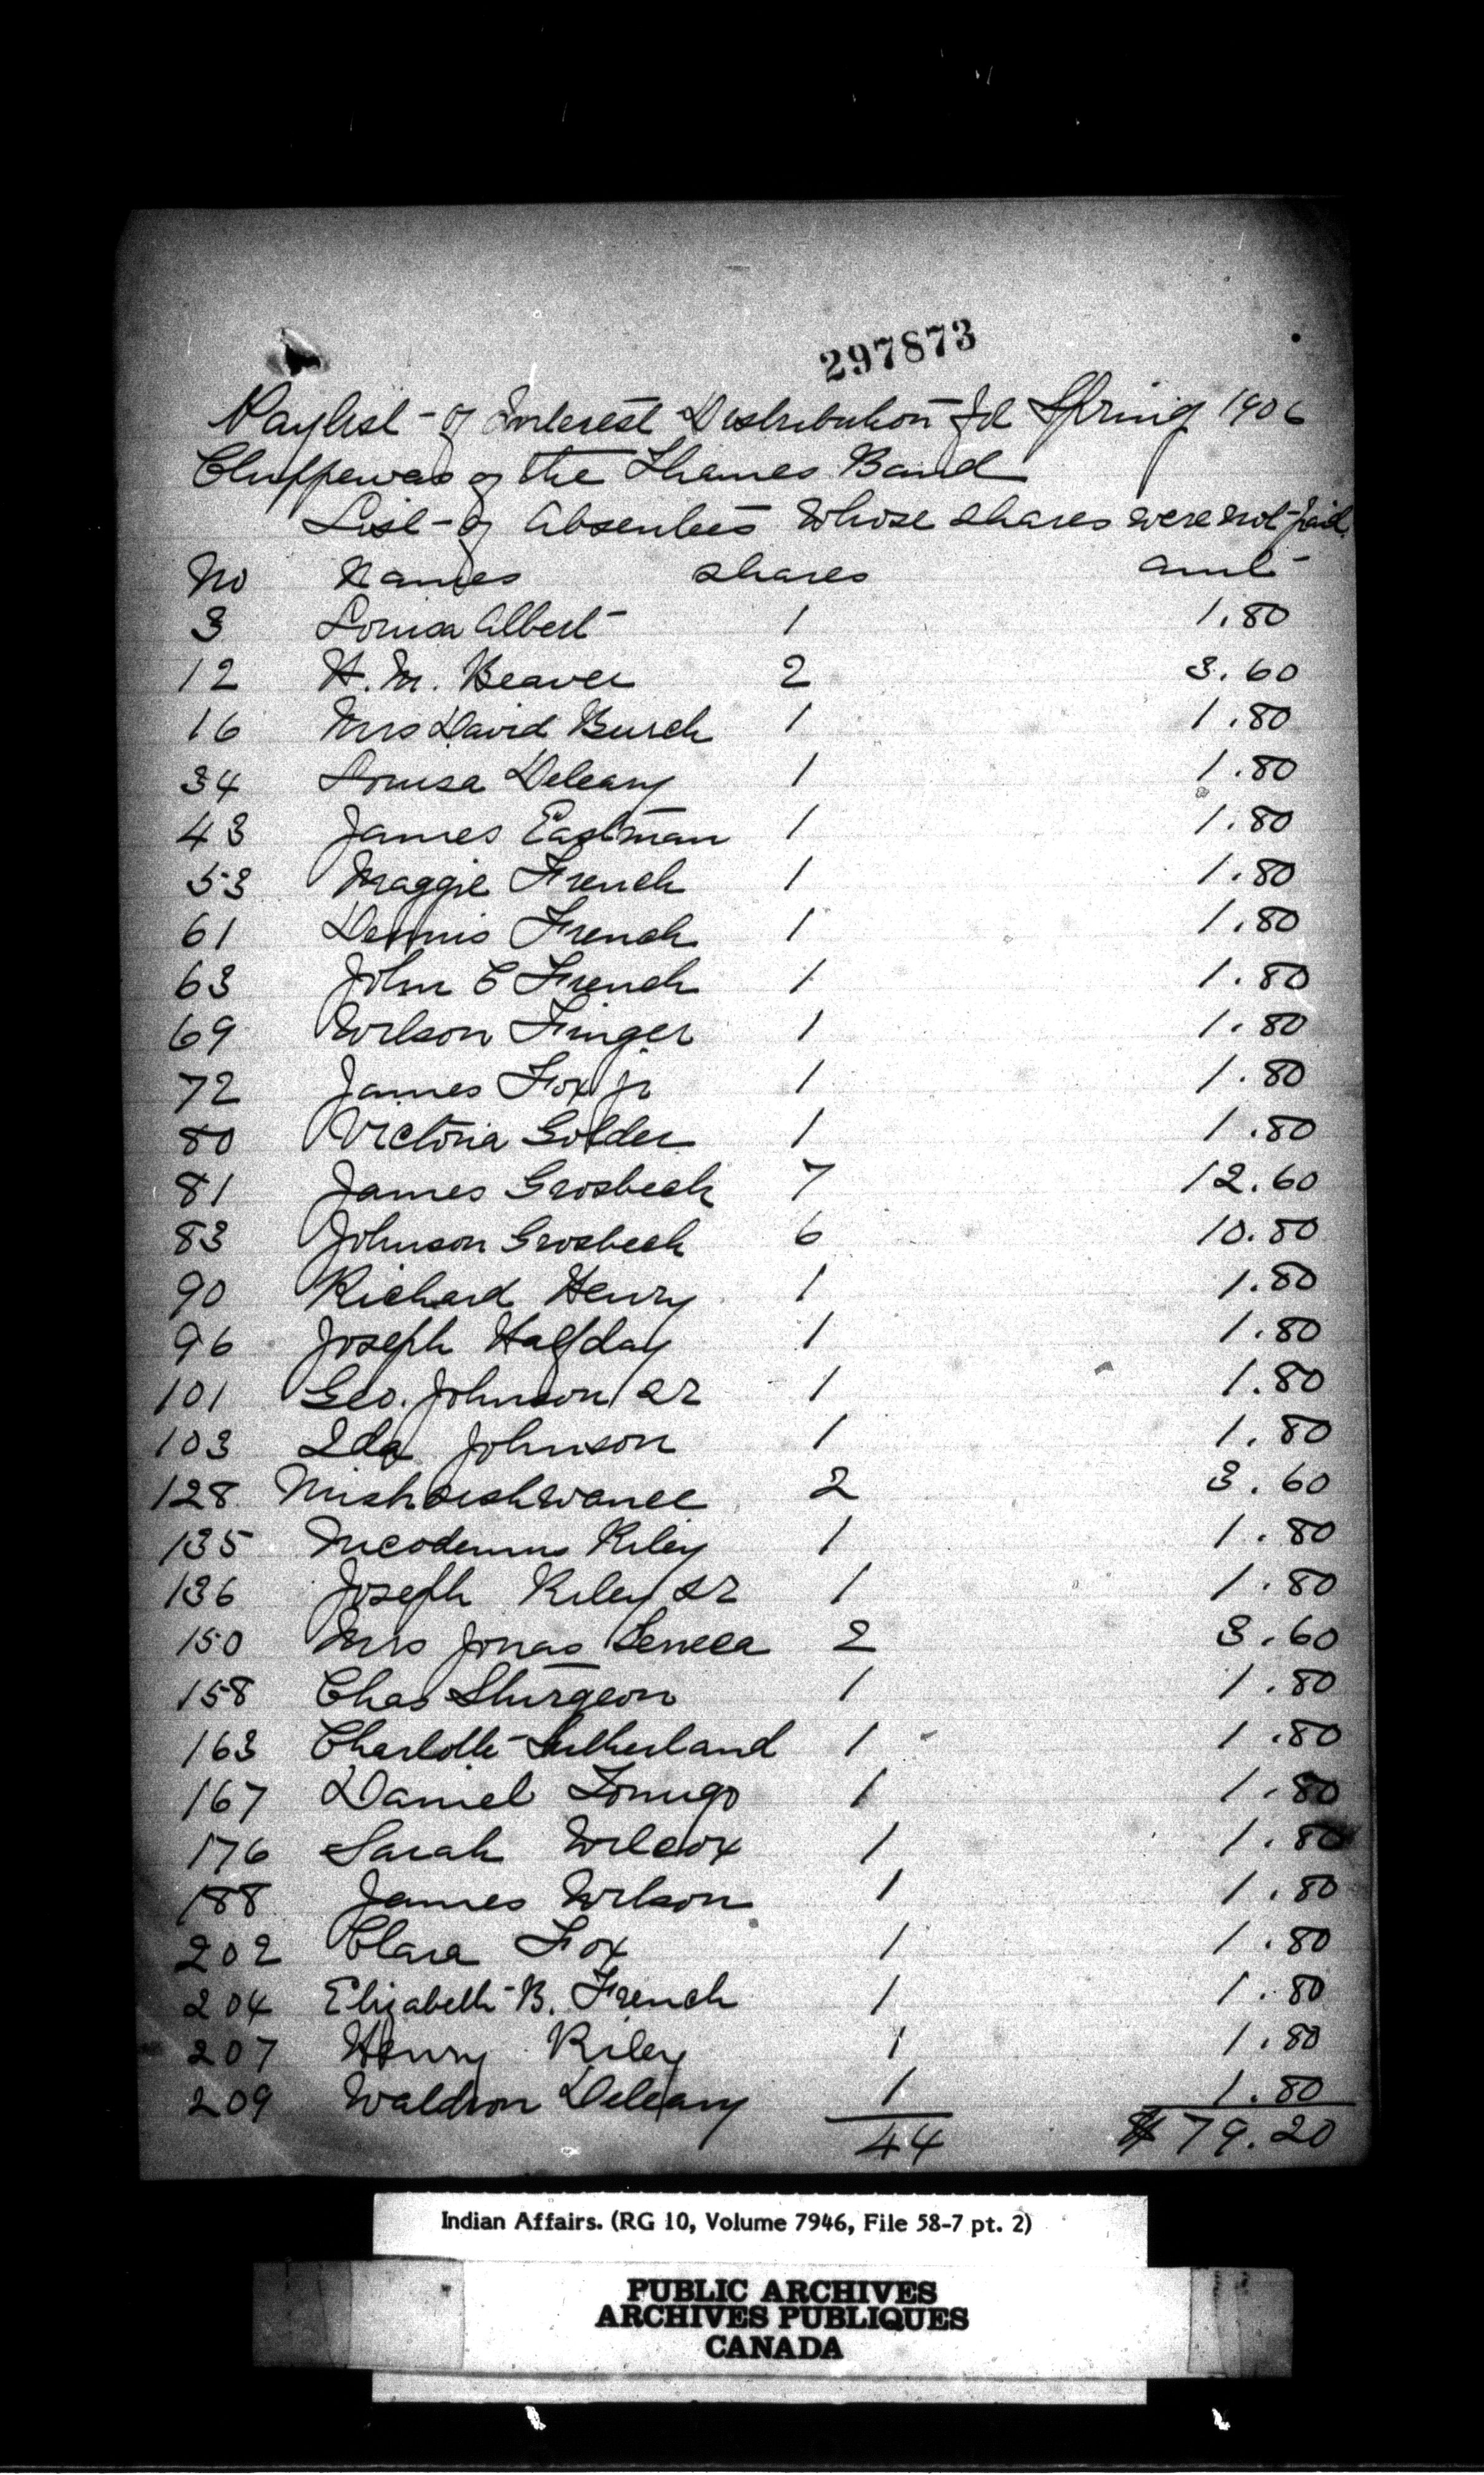 297873
Paylist of Interest Distribution Spring 1906
Chippewas of the Thames Band
List of Absentees whose shares were not paid
No Names shares amt
3 Louisa Albert 1 1.80
12 H. M. Beaver 2 3.60
16 Mrs David Burch 1 1.80
34 Louisa Deleary 1 1.80
43 James Eastman 1 1.80
53 Maggie French 1 1.80
61 Dennis French 1 1.80
63 John C French 1 1.80
69 Wilson Finger 1 1.80
72 James Fox jr 1 1.80
80 Victoria Golder 1 1.80
81 James Grosbeck 7 12.60
83 Johnson Grosbeck 6 10.80
90 Richard Henry 1 1.80
96 Joseph Halfday 1 1.80
101 Geo. Johnson sr 1 1.80
103 Ida Johnson 1 1.80
128 2 3.60
135 Nicodemus Riley 1 1.80
136 Joseph Riley sr 1 1.80
150 Mrs Jonas Seneca 2 3.60
158 Chas Sturgeon 1 1.80
163 Charlotte Sutherland 1 1.80
167 Daniel 1 1.80
176 Sarah Wilcox 1 1.80
188 James Wilson 1 1.80
202 Clara Fox 1 1.80
204 Elizabeth B. French 1 1.80
207 Henry Riley 1 1.80
209 Waldron Deleary 1 1.80
44 $79.20
Indian Affairs. (RG 10, Volume 7946, File 58-7 pt. 2)
PUBLIC ARCHIVES
ARCHIVES PUBLIQUES
CANADA